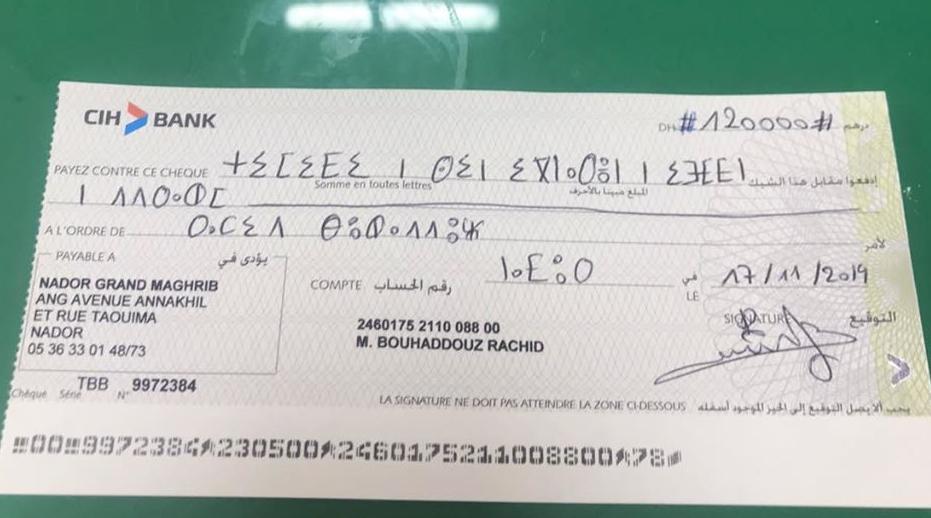 CIH BANK
DH #120000# درهم
PAYEZ CONTRE CE CHEQUE ⵜⵉⵎⵉⴹⵉ ⵏ ⵙⵉⵏ ⵏ ⵉⴼⴹⵏ إدفعوا مقابل هذا الشيك
Somme en toutes lettres المبلغ مبينا بالأحرف
ⵏ ⴷⴷⵔⴰⵀⵎ
A L'ORDRE DE ⵔⴰⵛⵉⴷ ⴱⵓⵀⴰⴷⴷⵓⵣ لأمر
PAYABLE A يؤدى في
NADOR GRAND MAGHRIB
ANG AVENUE ANNAKHIL
ET RUE TAOUIMA
NADOR
05 36 33 01 48/73
COMPTE رقم الحساب
ⵏⴰⴹⵓⵔ في LE 17/11/2019
2460175 2110 088 00
M. BOUHADDOUZ RACHID
SIGNATURE التوقيع
Chèque Série TBB N° 9972384
LA SIGNATURE NE DOIT PAS ATTEINDRE LA ZONE CI-DESSOUS يجب ألا يصل التوقيع إلى الحيز الموجود أسفله
00 9972384 230500 2460175211008800 78